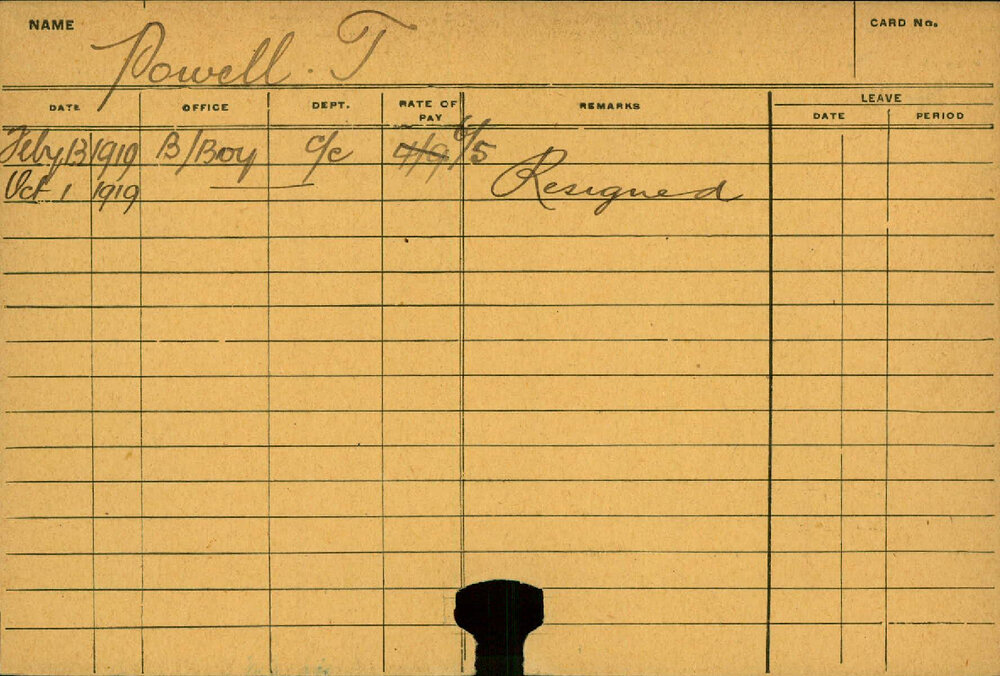 NAME Powell. T CARD No.
DATE OFFICE DEPT. RATE OF PAY REMARKS LEAVE
DATE PERIOD
Feby 13 1919 B/Boy c/c 4/9 6/5
Oct 1 1919 Resigned